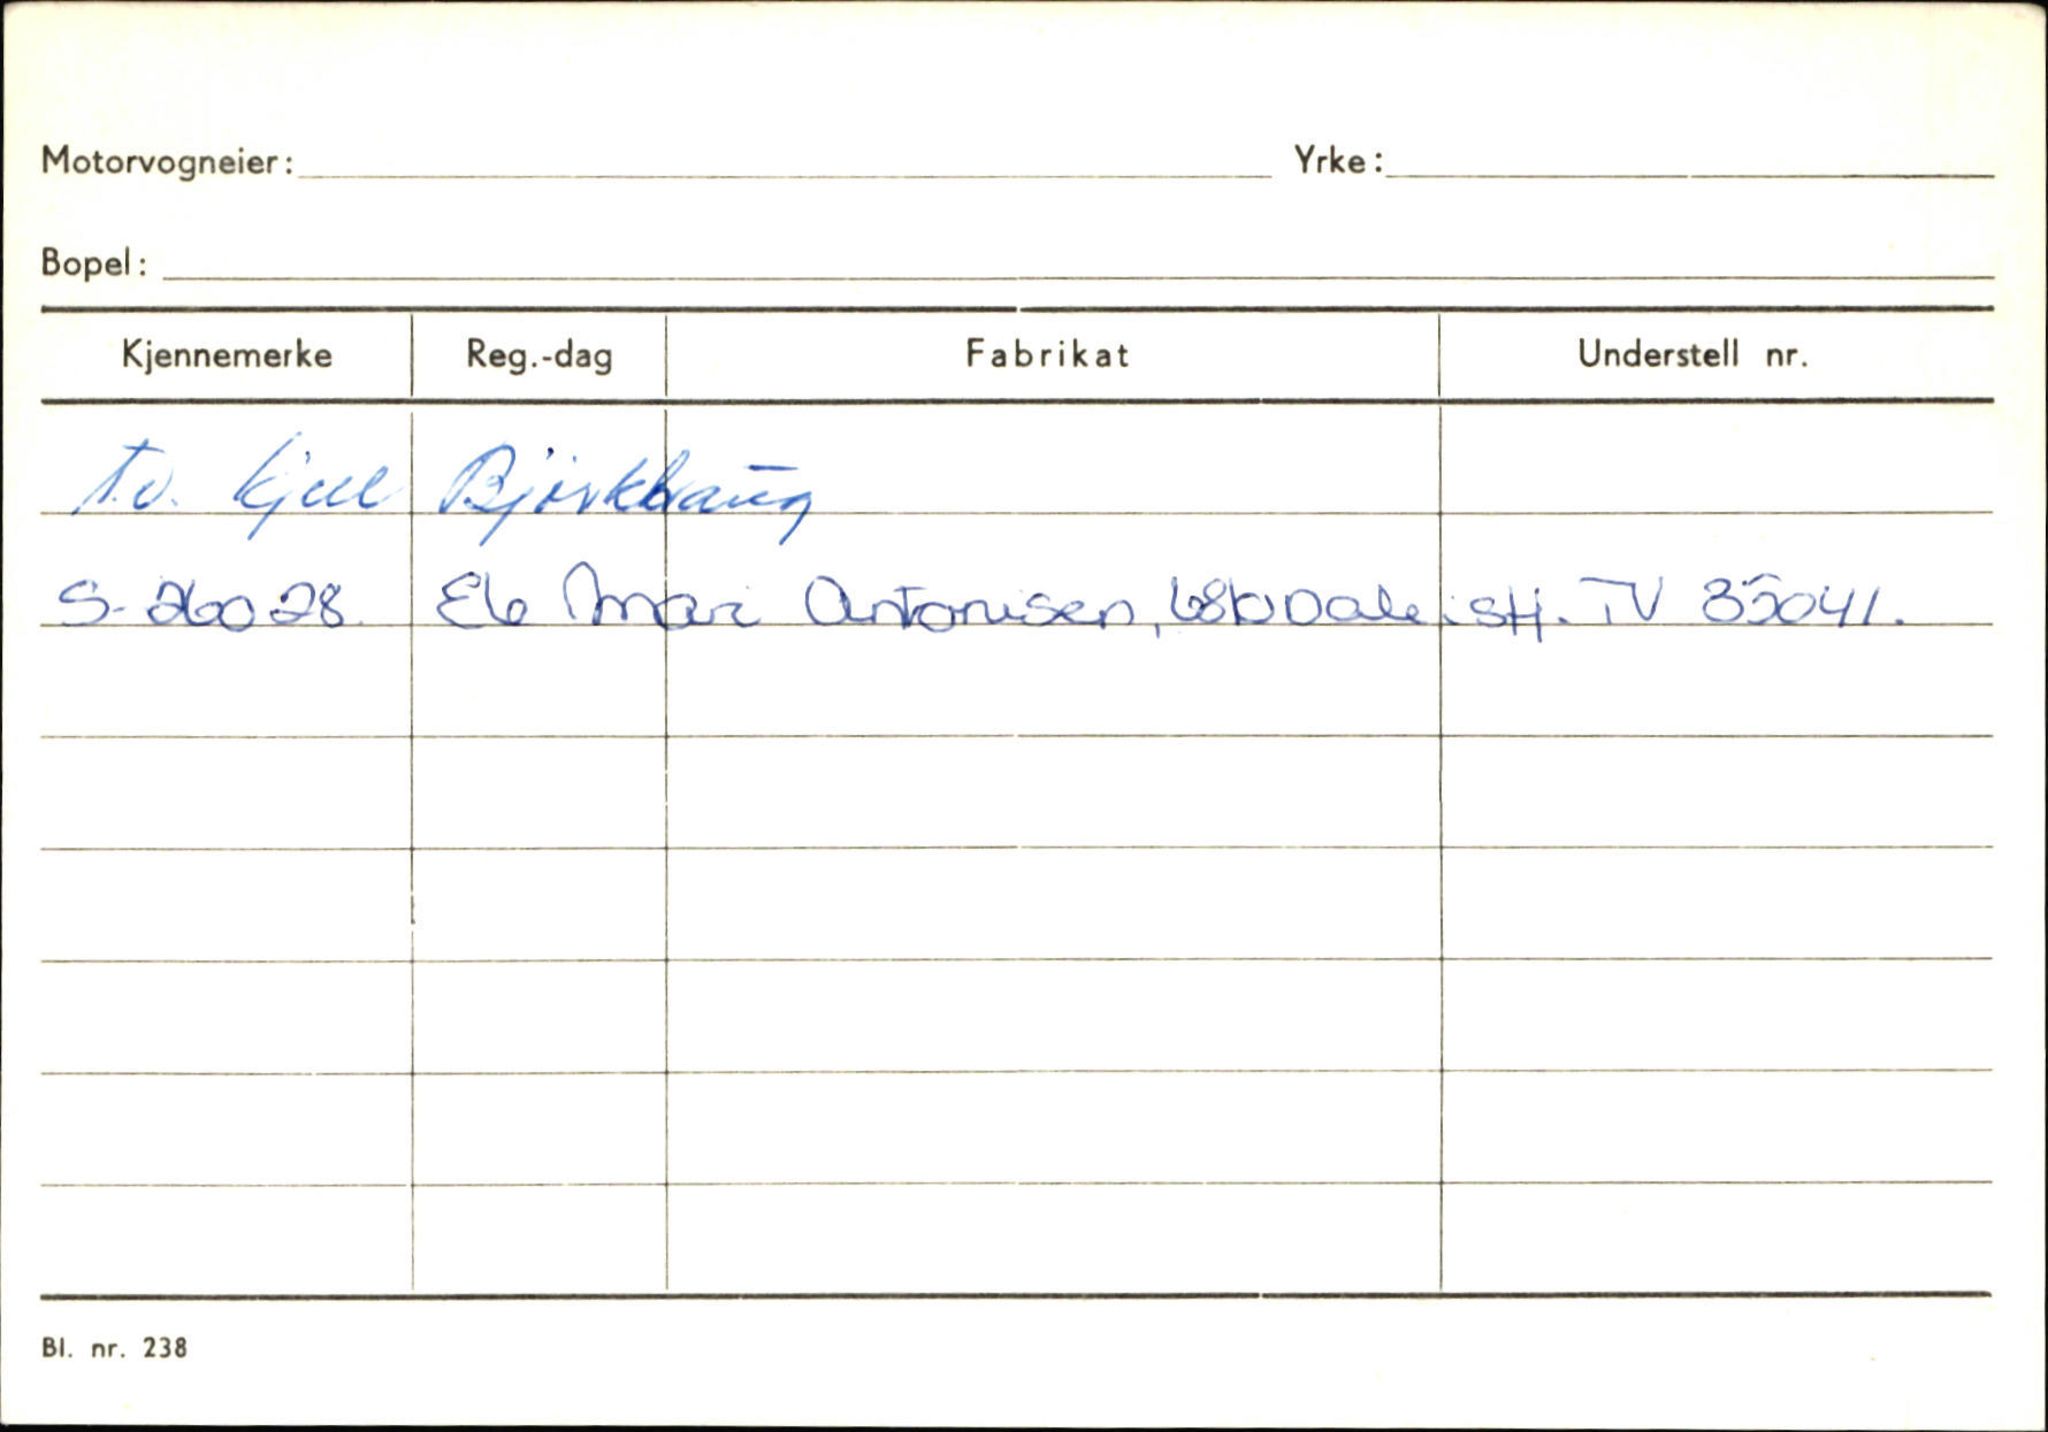 Motorvogneier: Yrke:
Bopel:
Kjennemerke Reg.-dag Fabrikat Understell nr.
T.v. Kjell Bjørkhaug
S-26028. Mari Antonisen, 6810 Dale i stj. TV 35041.
Bl. nr. 238